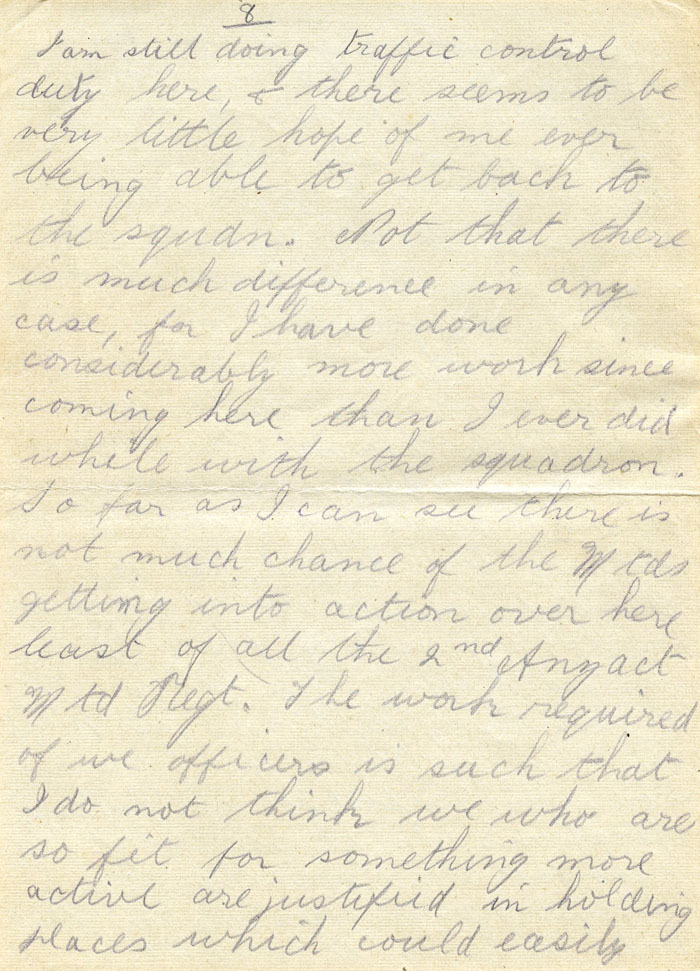 8
I am still doing traffic control
duty here, & there seems to be
very little hope of me ever
being able to get back to
the squdn. Not that there
is much difference in any
case, for I have done
considerably more work since
coming here than I ever did
while with the squadron.
So far as I can see there is
not much chance of the Mtds
getting into action over here
least of all the 2nd Anzact
Mtd Regt. The work required
of we officers is such that
I do not think we who are
so fit for something more
active are justified in holding
places which could easily